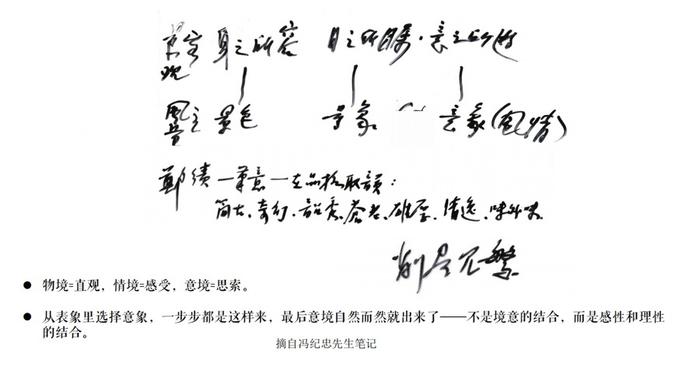 身之所容 目之所瞩·意之所游
景色 景象 ~ 意象(风情)
鄭績一筆意一在品格取韻:
简古、奇幻、韶秀、苍老、雄厚、清逸、味外味
削尽冗繁
● 物境=直观，情境=感受，意境=思索。
● 从表象里选择意象，一步步都是这样来，最后意境自然而然就出来了——不是境意的结合，而是感性和理性
的结合。
摘自冯纪忠先生笔记